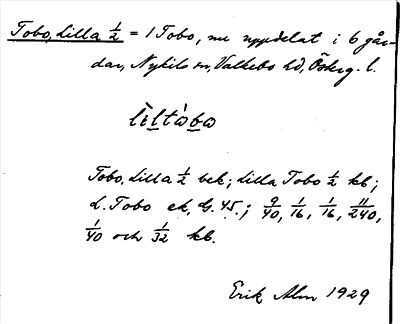 Tobo, Lilla 1/2 = 1 Tobo, nu uppdelat i 6 går-
dar, Nykils sn, Valkebo hd, Österg. l.
lìltòbo
Tobo, Lilla 1/2 bek; Lilla Tobo 1/2 kb;
L. Tobo ek, G. 45.; 9/40, 1/16, 1/16, 11/240,
1/40 och 1/32 kb.
Erik Alm 1929